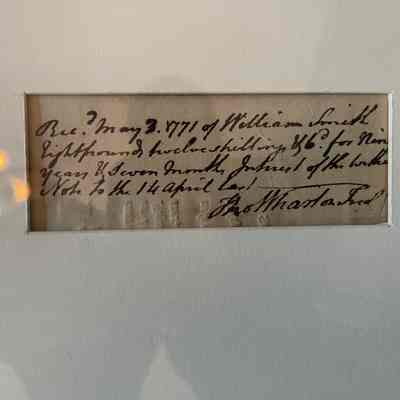 Rec.d May 3. 1771 of William Smith
Eight pounds twelve shilling & 6.d for Nine
Years & Seven Months Interest of the within
Note to the 14 April last
Tho Wharton Trea.r